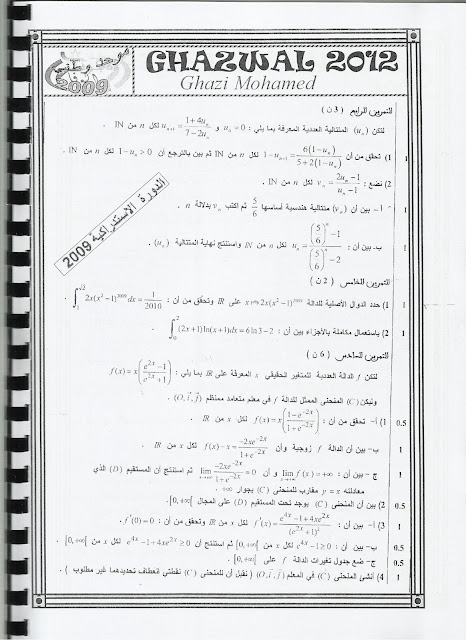 موحد وطني
2009
GHAZWAL 2012
Ghazi Mohamed
التمرين الرابع ( 3 ن )
لتكن (uₙ) المتتالية العددية المعرفة بما يلي : u₀ = 0 و uₙ₊₁ = (1+4uₙ)/(7−2uₙ) لكل n من IN .
1) تحقق من أن 1−uₙ₊₁ = 6(1−uₙ)/(5+2(1−uₙ)) لكل n من IN ثم بين بالترجع أن 1−uₙ > 0 لكل n من IN . 1
2) نضع : vₙ = (2uₙ−1)/(uₙ−1) لكل n من IN .
أ- بين أن (vₙ) متتالية هندسية أساسها 5/6 ثم اكتب vₙ بدلالة n . 1
ب- بين أن : uₙ = ((5/6)ⁿ−1)/((5/6)ⁿ−2) لكل n من IN واستنتج نهاية المتتالية (uₙ) . 1
الدورة الاستدراكية 2009
التمرين الخامس ( 2 ن )
1) حدد الدوال الأصلية للدالة x↦2x(x²−1)²⁰⁰⁹ على IR وتحقق من أن : ∫₁^√2 2x(x²−1)²⁰⁰⁹dx = 1/2010 . 1
2) باستعمال مكاملة بالأجزاء بين أن : ∫₀² (2x+1)ln(x+1)dx = 6ln3−2 . 1
التمرين السادس ( 6 ن )
لتكن f الدالة العددية للمتغير الحقيقي x المعرفة على IR بما يلي : f(x) = x((e²ˣ−1)/(e²ˣ+1))
وليكن (C) المنحنى الممثل للدالة f في معلم متعامد ممنظم (O,i⃗,j⃗) .
1) أ- تحقق من أن : f(x) = x((1−e⁻²ˣ)/(1+e⁻²ˣ)) لكل x من IR . 0.5
ب- بين أن الدالة f زوجية وأن f(x)−x = −2xe⁻²ˣ/(1+e⁻²ˣ) لكل x من IR . 1
ج - بين أن : lim f(x) = +∞ وأن lim −2xe⁻²ˣ/(1+e⁻²ˣ) = 0 ثم استنتج أن المستقيم (D) الذي 1
معادلته y = x مقارب للمنحنى (C) بجوار +∞ .
2) بين أن المنحنى (C) يوجد تحت المستقيم (D) على المجال [0,+∞[ . 0.5
3) أ- بين أن : f'(x) = (e⁴ˣ−1+4xe²ˣ)/(e²ˣ+1)² لكل x من IR وتحقق من أن : f'(0) = 0 . 1
ب- بين أن : e⁴ˣ−1≥0 لكل x من [0,+∞[ ثم استنتج أن e⁴ˣ−1+4xe²ˣ≥0 لكل x من [0,+∞[ . 0.5
ج- ضع جدول تغيرات الدالة f على [0,+∞[ . 0.5
4) أنشئ المنحنى (C) في المعلم (O,i⃗,j⃗) ( نقبل أن للمنحنى (C) نقطتي انعطاف تحديدهما غير مطلوب ) . 1